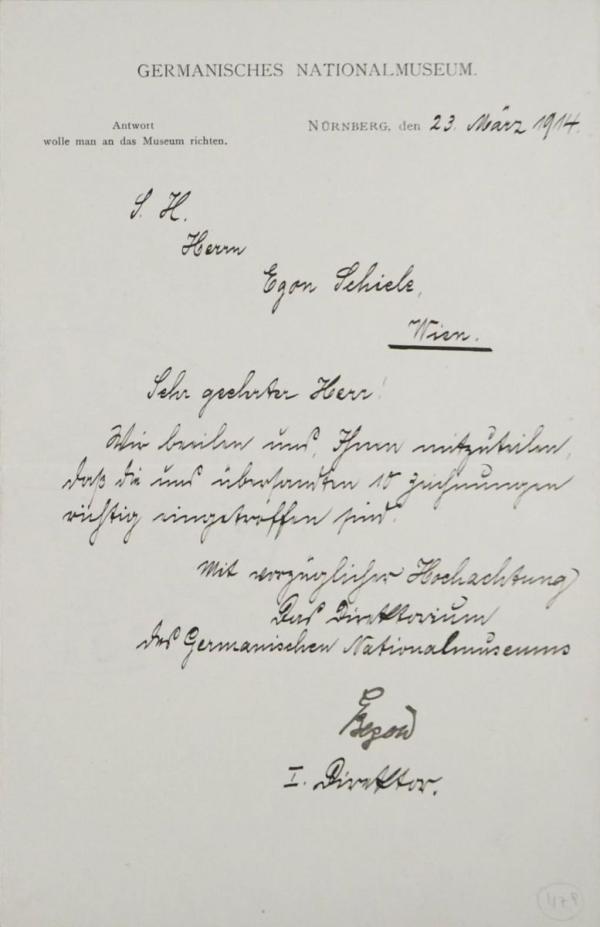 GERMANISCHES NATIONALMUSEUM.
Antwort
wolle man an das Museum richten.
NÜRNBERG, den 23. März 1914.
S. H.
Herrn
Egon Schiele,
Wien.
Sehr geehrter Herr!
Wir beeilen uns, Ihnen mitzuteilen,
daß die uns übersandten 10 Zeichnungen
richtig eingetroffen sind.
Mit vorzüglicher Hochachtung
Das Direktorium
des Germanischen Nationalmuseums
I. Direktor.